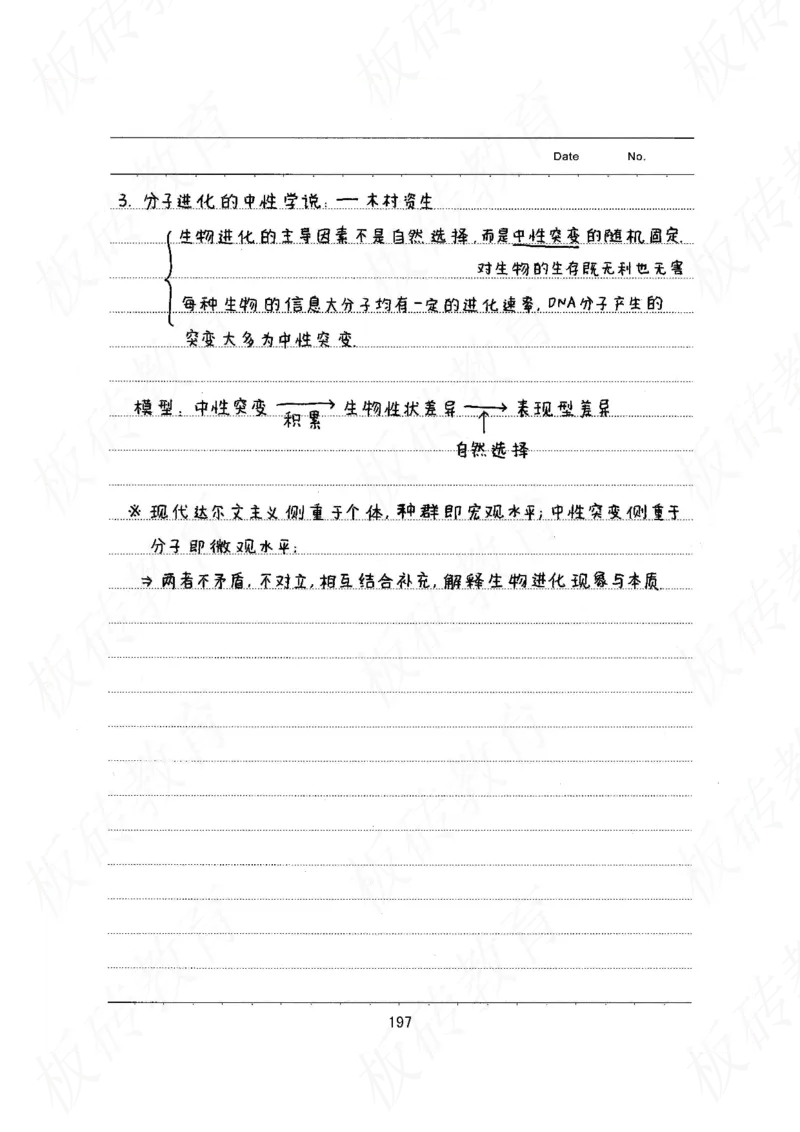 Date No.
3. 分子进化的中性学说: — 木村资生
生物进化的主导因素不是自然选择,而是中性突变的随机固定.
对生物的生存既无利也无害
每种生物的信息大分子均有一定的进化速率, DNA分子产生的
突变大多为中性突变.
模型: 中性突变 → 生物性状差异 → 表现型差异
积累
自然选择
※ 现代达尔文主义侧重于个体, 种群即宏观水平; 中性突变侧重于
分子即微观水平;
⇒ 两者不矛盾, 不对立, 相互结合补充, 解释生物进化现象与本质.
197
板砖教育